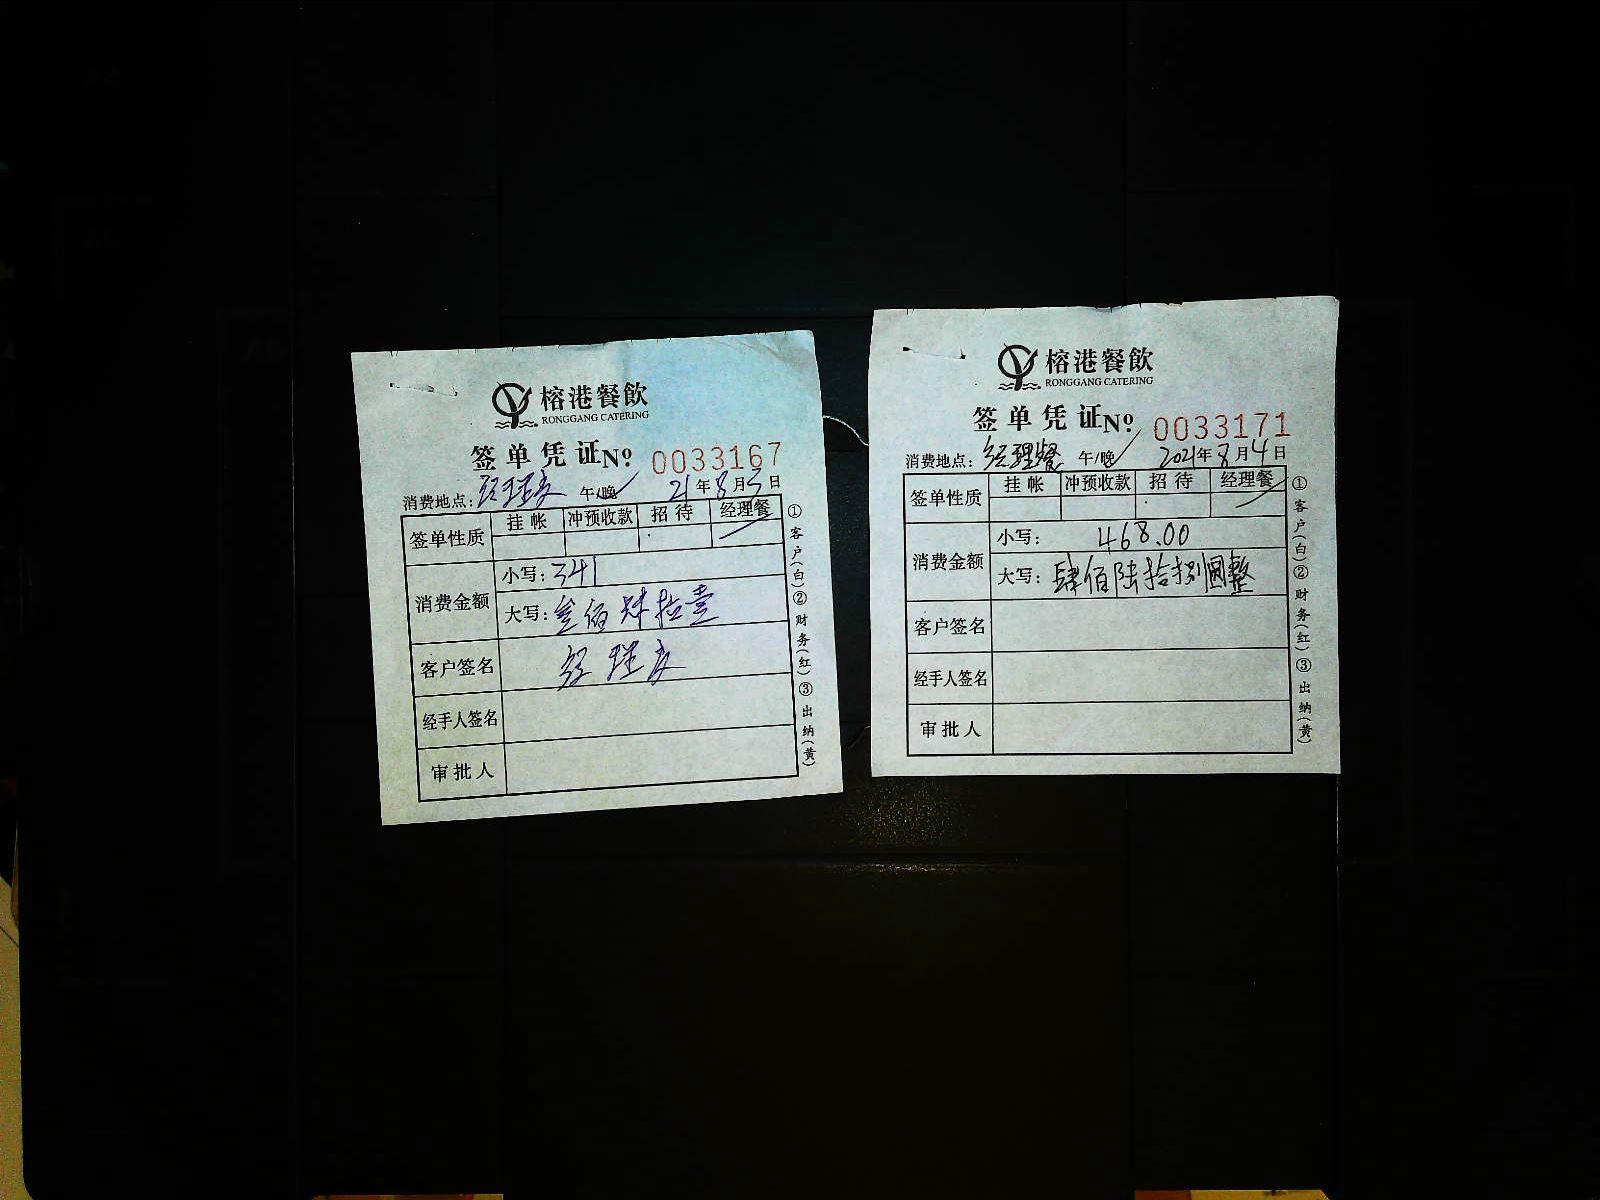 榕港餐飲
RONGGANG CATERING
签单凭证№ 0033167
消费地点: 经理 午/晚 21年8月3日
签单性质 挂帐 冲预收款 招待 经理餐
消费金额 小写: 341
大写: 叁佰肆拾壹
客户签名 经理
经手人签名
审批人
①客户(白)②财务(红)③出纳(黄)
榕港餐飲
RONGGANG CATERING
签单凭证№ 0033171
消费地点: 经理餐 午/晚 2021年8月4日
签单性质 挂帐 冲预收款 招待 经理餐
消费金额 小写: 468.00
大写: 肆佰陆拾捌圆整
客户签名
经手人签名
审批人
①客户(白)②财务(红)③出纳(黄)